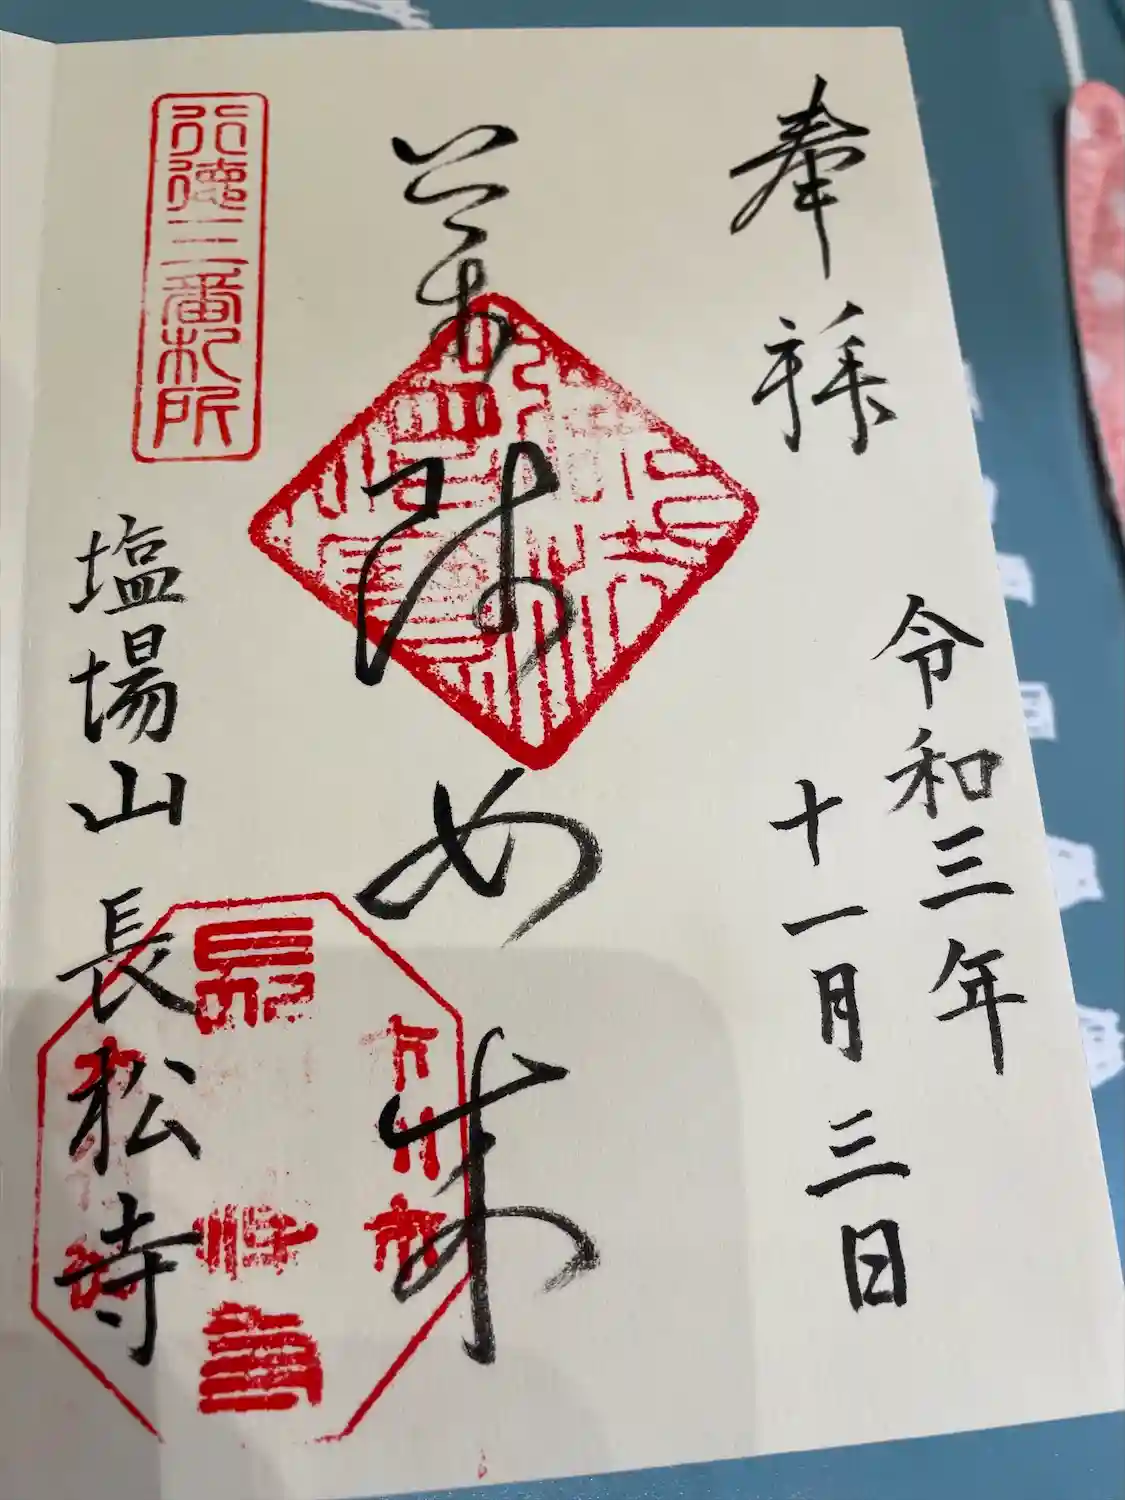 奉拝
令和三年
十一月三日
薬師如来
行徳三番札所
塩場山長松寺